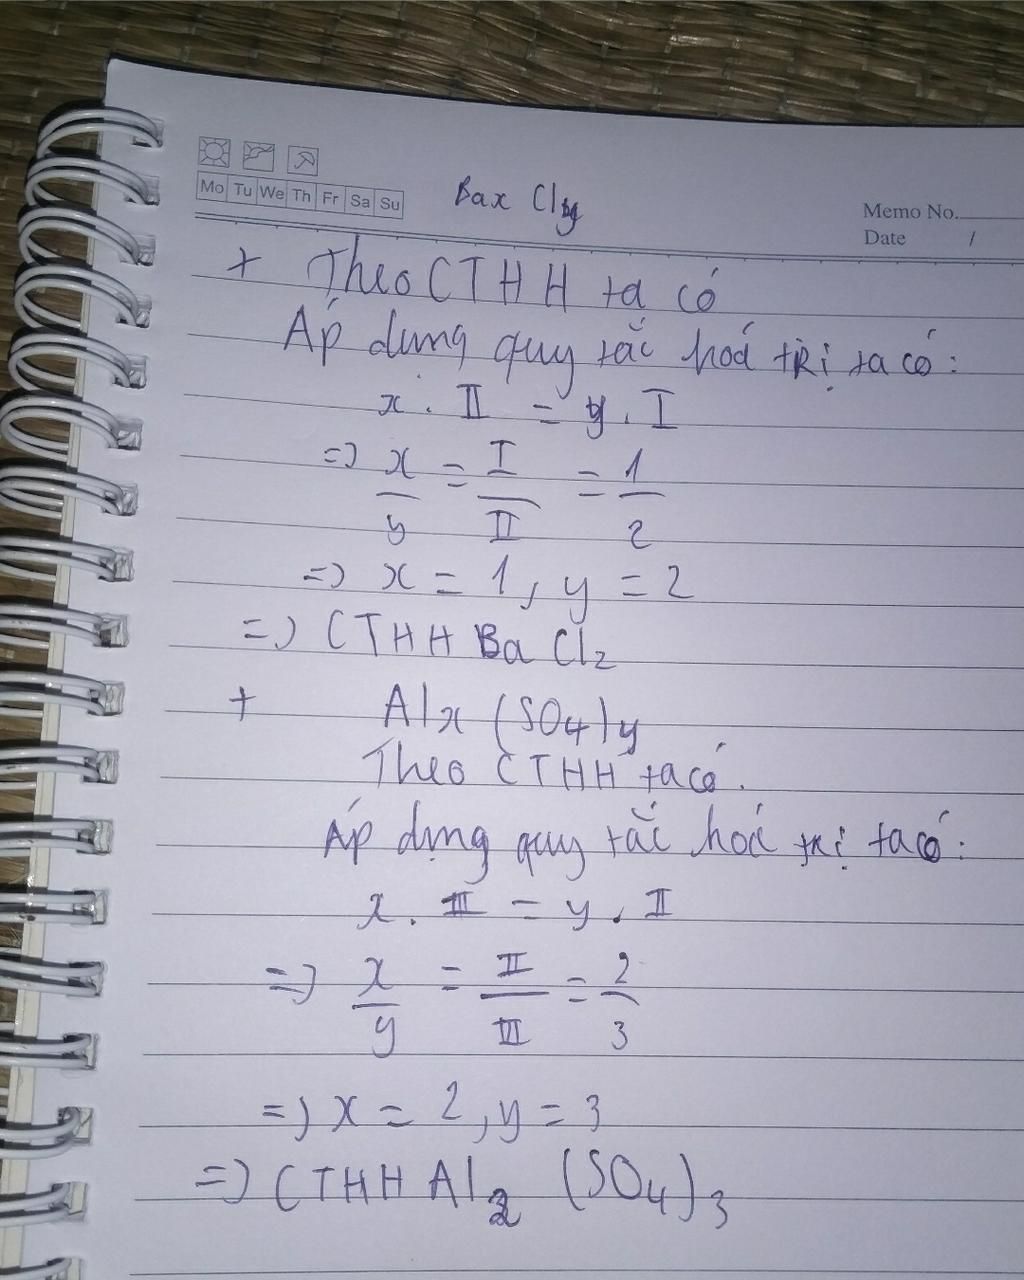 Mo Tu We Th Fr Sa Su
Bax Cly
Memo No.
Date /
+ Theo CTHH ta có
Áp dụng quy tắc hoá trị ta có:
x . II = y . I
=> x/y = I/II = 1/2
=> x = 1, y = 2
=> CTHH Ba Cl2
+ Alx (SO4)y
Theo CTHH ta có.
Áp dụng quy tắc hoá trị ta có:
x . III = y . II
=> x/y = II/III = 2/3
=> x = 2, y = 3
=> CTHH Al2 (SO4)3